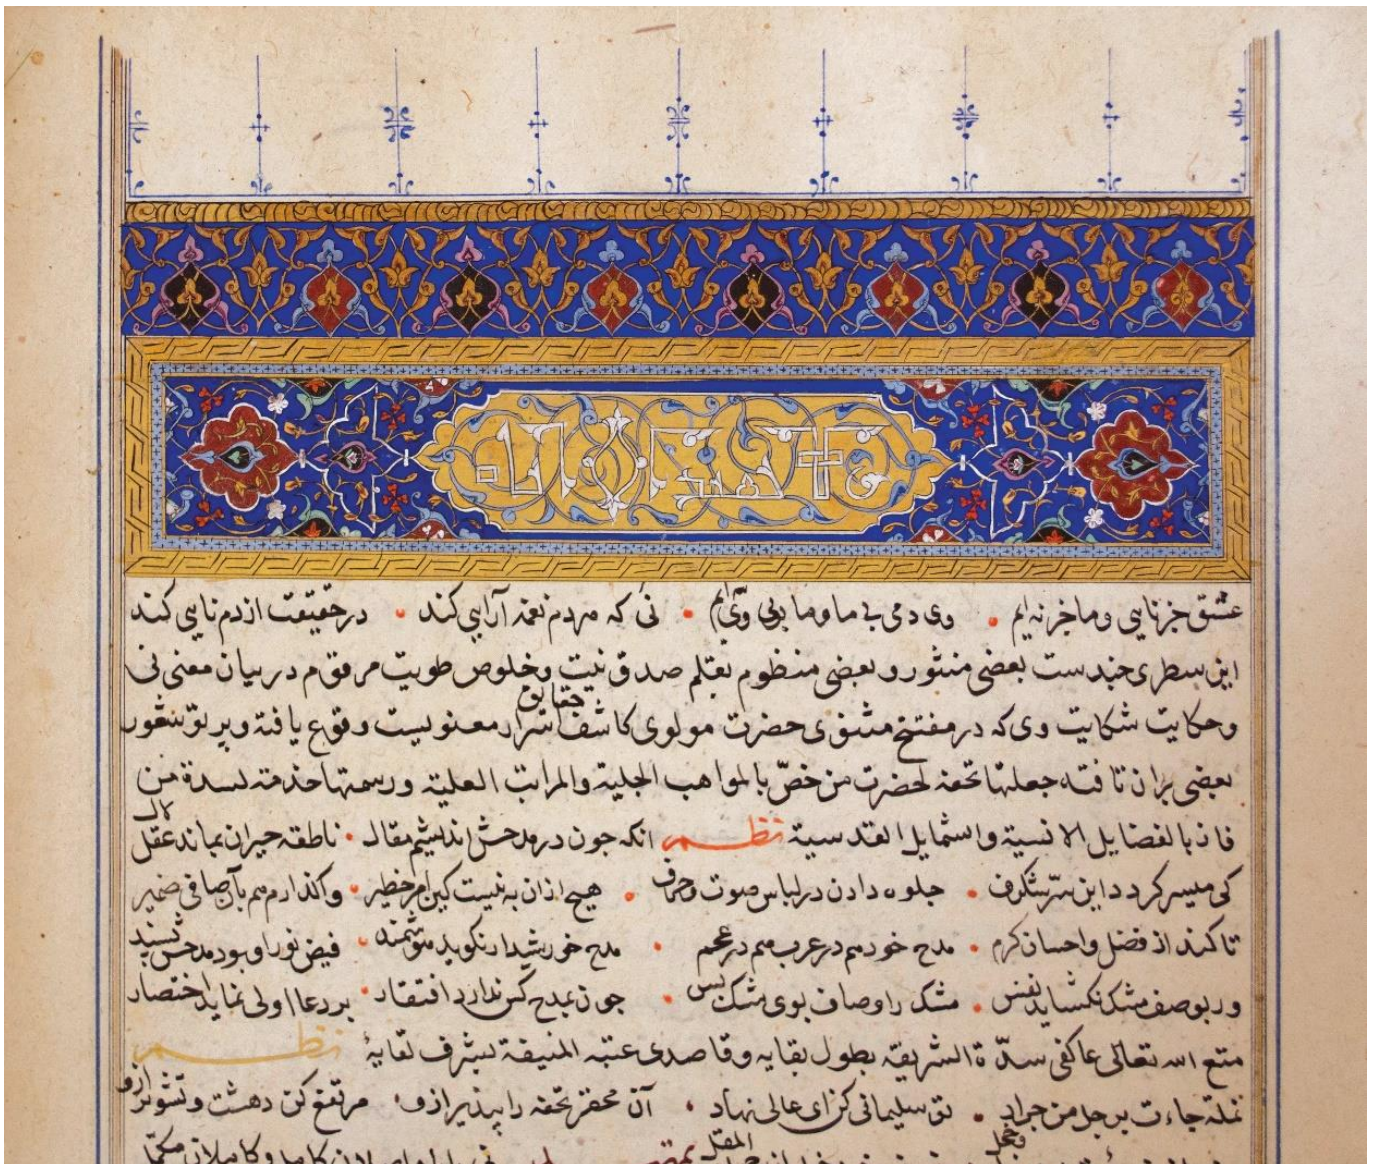 عشق جز نایی و ما جز نه ایم • وی دمی بی ما و ما بی وی نه ایم • نی که هردم نغمه آرایی کند • در حقیقت از دم نایی کند
این سطری چندست بعضی منثور و بعضی منظوم بقلم صدق نیت و خلوص طویت مرقوم در بیان معنی نی
و حکایت شکایت وی که در مفتتح مثنوی حضرت مولوی کاشف اسرار حقایق معنویست وقوع یافته و پرتو شعور
بعضی بران تافته جعلتها تحفه لحضرت من خصّ بالمواهب الجلیة والمراتب العلیة ورسمتها خدمة لسدة من
فاز بالفضایل الانسیة والشمایل القدسیة نظم انکه چون در مدحش اندیشم مقال • ناطقه حیران بماند عقل لال
کی میسر کردد این سرّ شکرف • جلوه دادن در لباس صوت و حرف • هیچ ازان به نیست کین امر خطیر • واکذارم هم بآن صافی ضمیر
تا کند از فضل و احسان کرم • مدح خود هم در عرب هم در عجم • مدح خورشید ار نکوید هوشمند • فیض نور او بود مدحش پسند
ور بوصف مشک نکشاید نفس • مشک را وصاف بوی مشک بس • چون بمدح کس ندارد افتقار • بر دعا اولی نماید اختصار
متع الله تعالی عاکفی سدّة الشریفة بطول بقایه وقاصدی عتبه المنیفة بشرف لقایه نظم
نملة جاءت برجل من جراد • تو سلیمانی کن ای عالی نهاد • آن محقر تحفه را بپذیر ازو • مرتفع کن دهشت و تشویر ازو